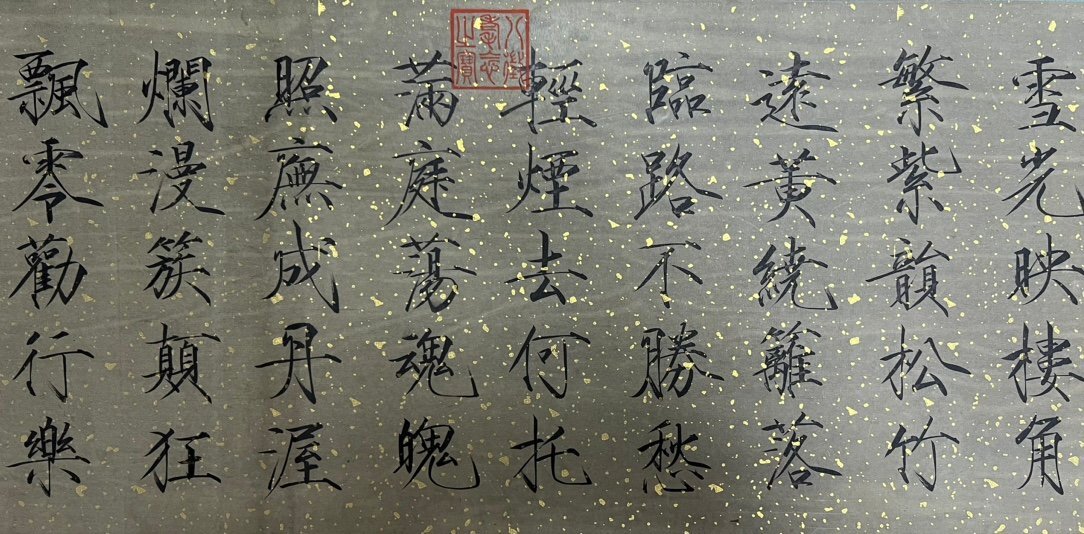 雪光映樓角
繁紫韻松竹
遠黃繞籬落
臨路不勝愁
輕煙去何托
滿庭蕩魂魄
照廡成丹渥
爛漫簇顛狂
飄零勸行樂
八徵耄念之寶